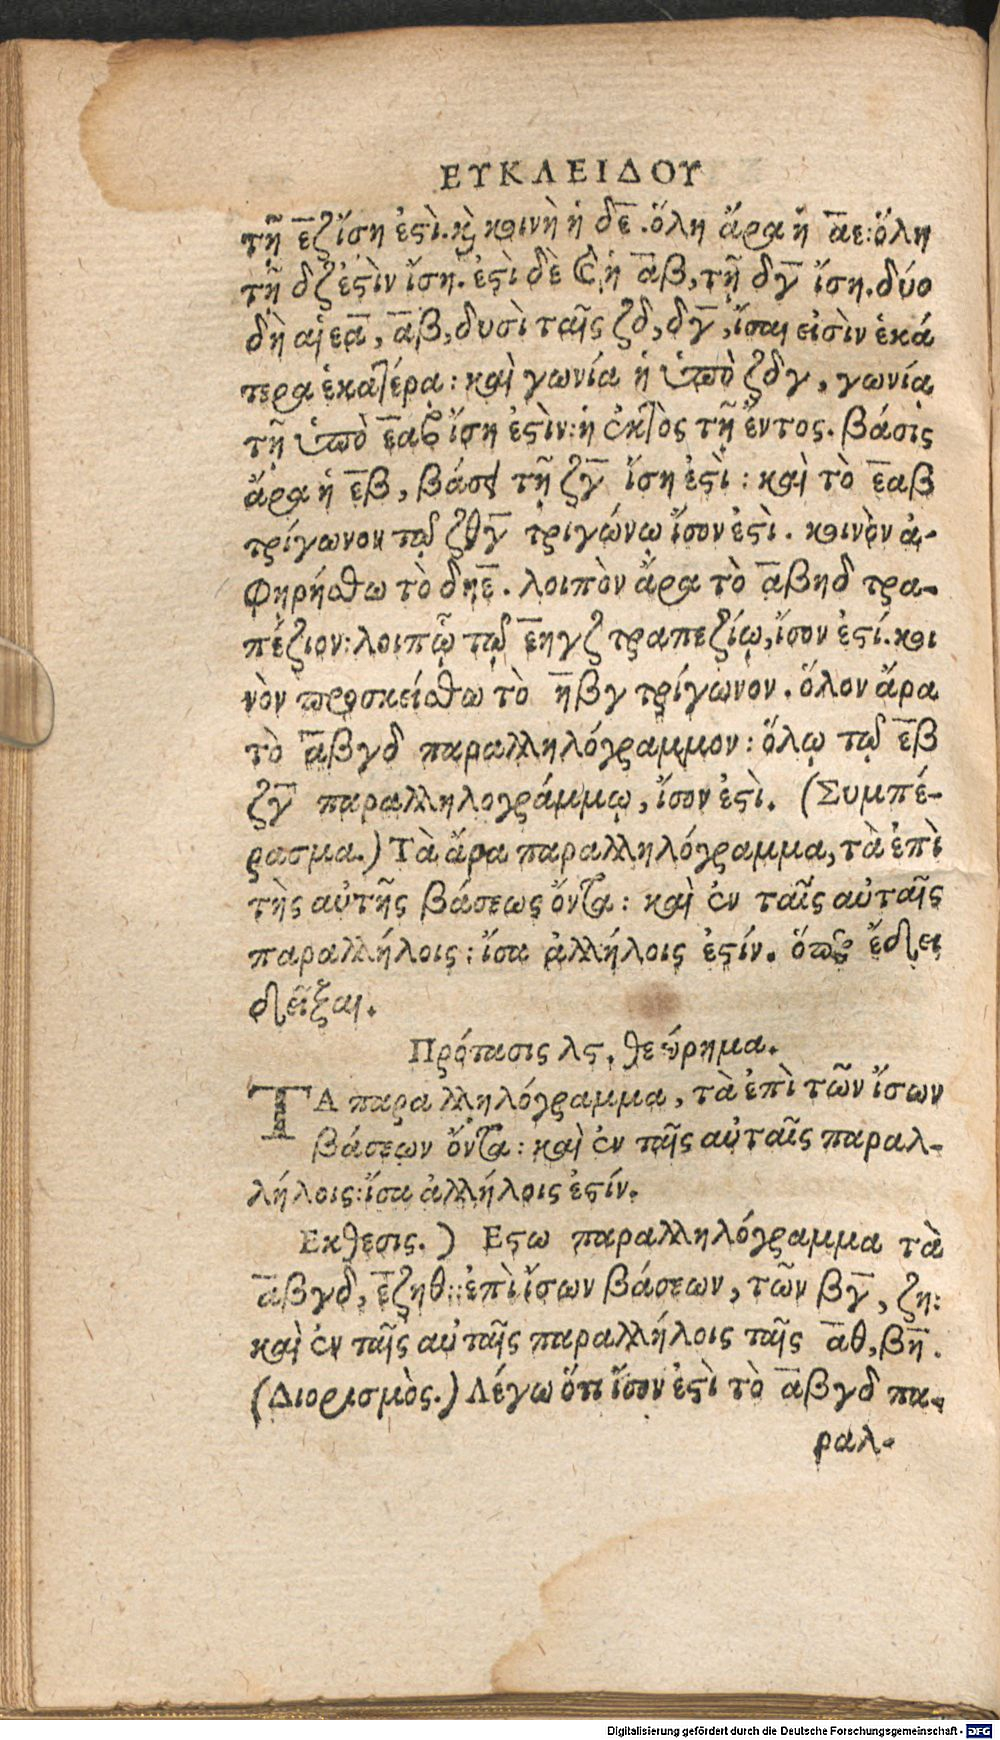 ΕΥΚΛΕΙΔΟΥ
τῇ εζ ἴση ἐστὶ. καὶ κοινὴ ἡ δε. ὅλη ἄρα ἡ αε: ὅλη
τῇ δζ ἐστὶν ἴση. ἐστὶ δὲ καὶ ἡ αβ, τῇ δγ ἴση. δύο
δὴ αἱ εα, αβ, δυσὶ ταῖς ζδ, δγ, ἴσαι εἰσὶν ἑκά
τερα ἑκατέρα: καὶ γωνία ἡ ὑπὸ ζδγ, γωνία
τῇ ὑπὸ εαβ ἴση ἐστὶν: ἡ ἐκτὸς τῇ ἔντος. βάσις
ἄρα ἡ εβ, βάσει τῇ ζγ ἴση ἐστὶ: καὶ τὸ εαβ
τρίγωνον τῷ ζθγ τριγώνω ἴσον ἐστὶ. κοινὸν ἀ-
φηρήσθω τὸ δηε. λοιπὸν ἄρα τὸ αβηδ τρα-
πέζιον: λοιπῷ τῷ εηγζ τραπεζίῳ, ἴσον ἐστί. κοι
νὸν προσκείσθω τὸ ηβγ τρίγωνον. ὅλον ἄρα
τὸ αβγδ παραλληλόγραμμον: ὅλῳ τῷ εβ
ζγ παραλληλογράμμῳ, ἴσον ἐστὶ. (Συμπέ-
ρασμα.) Τὰ ἄρα παραλληλόγραμμα, τὰ ἐπὶ
τῆς αὐτῆς βάσεως ὄντα: καὶ ἐν ταῖς αὐταῖς
παραλλήλοις: ἴσα ἀλλήλοις ἐστίν. ὅπερ ἔδει
δεῖξαι.
Πρότασις λς, θεώρημα.
ΤΑ παραλληλόγραμμα, τὰ ἐπὶ τῶν ἴσων
βάσεων ὄντα: καὶ ἐν ταῖς αὐταῖς παραλ-
λήλοις: ἴσα ἀλλήλοις ἐστίν.
Εκθεσις.) Εστω παραλληλόγραμμα τὰ
αβγδ, εζηθ: ἐπὶ ἴσων βάσεων, τῶν βγ, ζη:
καὶ ἐν ταῖς αὐταῖς παραλλήλοις ταῖς αθ, βη.
(Διορισμὸς.) Λέγω ὅτι ἴσον ἐστὶ τὸ αβγδ πα-
ραλ-
Digitalisierung gefördert durch die Deutsche Forschungsgemeinschaft - DFG